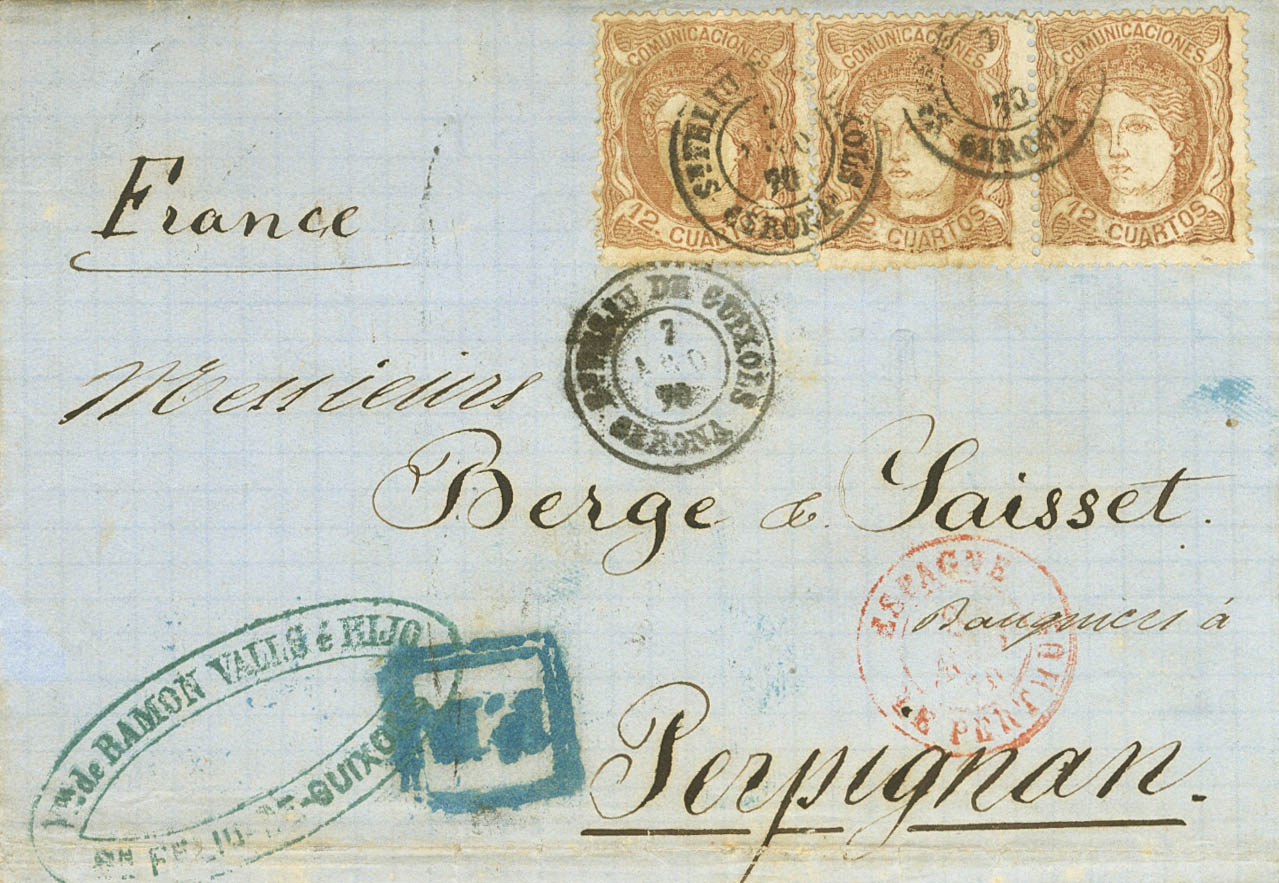 COMUNICACIONES COMUNICACIONES COMUNICACIONES
12. CUARTOS 12. CUARTOS 12. CUARTOS
Sn FELIU GUIXOLS
70
GERONA
70
GERONA
France
Sn FELIU DE GUIXOLS
7
AGO
70
GERONA
Messieurs
Berge & Saisset.
Banquiers á
Perpignan.
ESPAGNE
LE PERTHUS
Vda de RAMON VALLS é HIJO
Sn FELIU-DE-GUIXOLS
P.D.